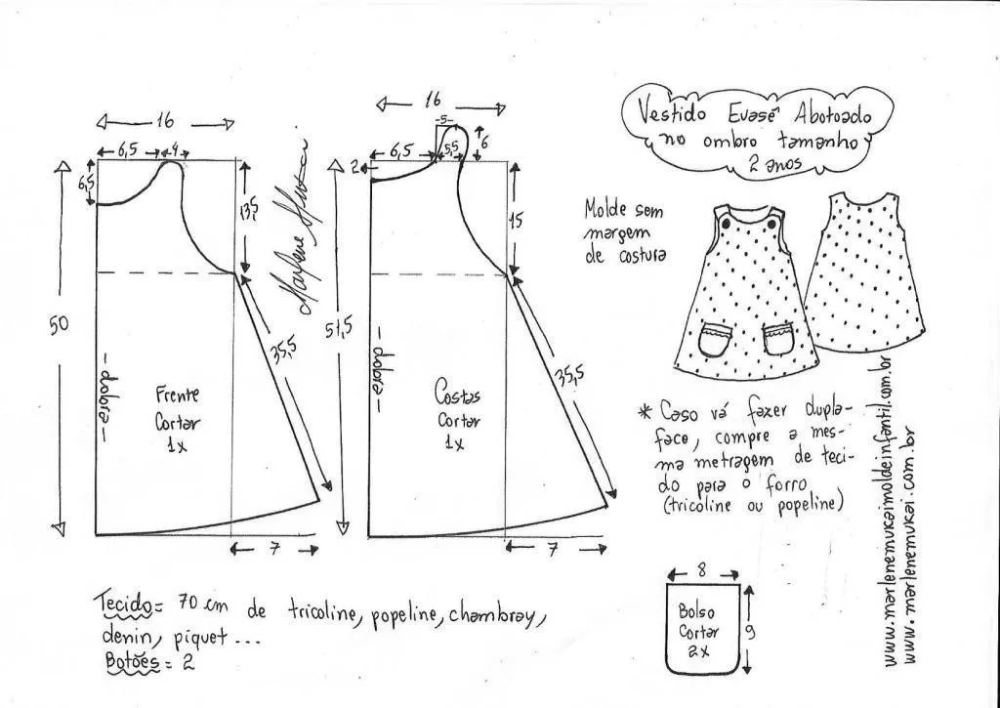 Vestido Evasê Abotoado
no ombro tamanho
2 anos
Molde sem
margem
de costura
16
6,5
4
6,5
13,5
50
35,5
dobra
Frente
Cortar
1x
7
Marlene Mukai
16
5
6,5
5,5
6
2
15
51,5
35,5
dobra
Costas
Cortar
1x
7
* Caso vá fazer dupla-
face, compre a mes-
ma metragem de teci-
do para o forro
(tricoline ou popeline)
8
Bolso
Cortar
2x
9
Tecido = 70 cm de tricoline, popeline, chambray,
denin, piquet ...
Botões = 2
www.marlenemukaimoldeinfantil.com.br
www.marlenemukai.com.br